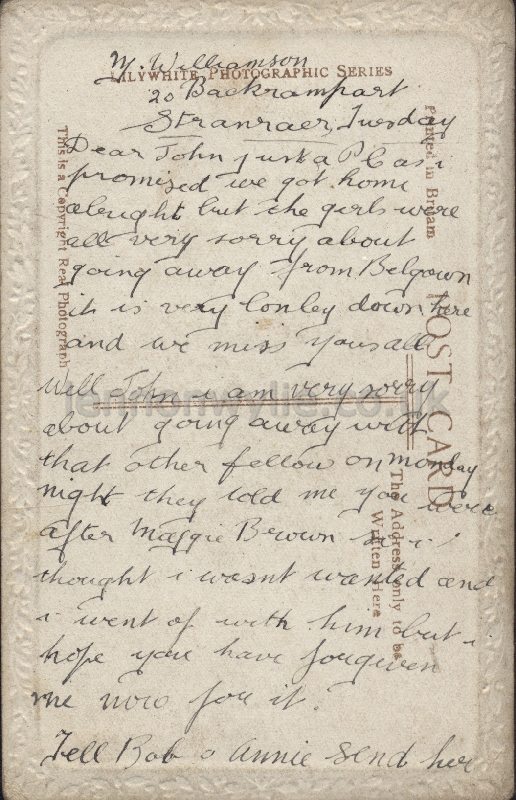 M. Williamson
LILYWHITE PHOTOGRAPHIC SERIES
20 Backrampart
Stranraer, Tuesday
Dear John just a P C as i
promised we got home
alright but the girls were
all very sorry about
going away from Belgown
it is very lonley down here
and we miss yous all
Well John i am very sorry
about going away with
that other fellow on monday
night they told me you were
after Maggie Brown so i
thought i wasnt wanted and
i went of with him but i
hope you have forgiven
me now for it.
Tell Bob o Annie send her
This is a Copyright Real Photograph
Printed in Britain
POST CARD
The Address only to be
Written Here
lennonwylie.co.uk